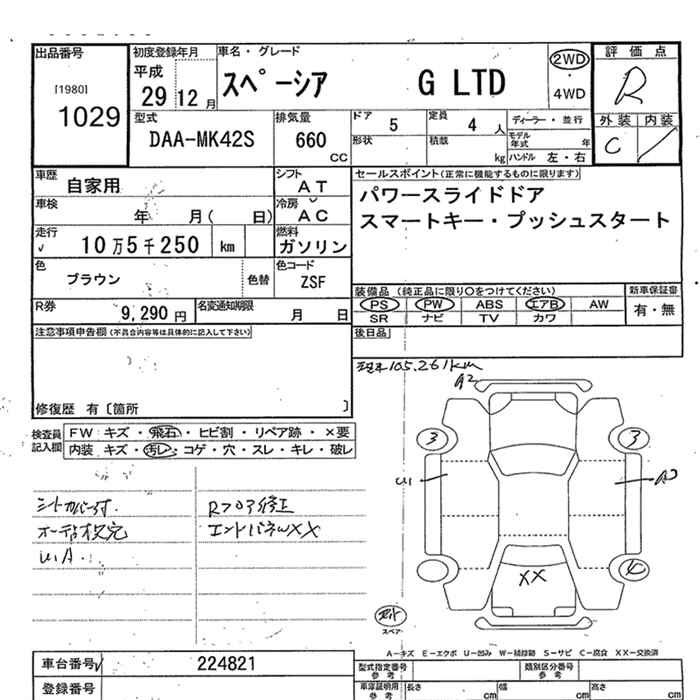 出品番号
[1980]
1029
初度登録年月
平成
29 12 月
車名・グレード
スペーシア G LTD
2WD
・
4WD
評価点
R
外装 内装
C
型式
DAA-MK42S
排気量
660
CC
ドア
5
定員
4 人
形状
積載
kg
ディーラー・並行
モデル年式 年
ハンドル 左・右
車歴
自家用
シフト
AT
車検
年 月( 日)
冷房
AC
走行
10万5千250 km
燃料
ガソリン
色
ブラウン
色替
色コード
ZSF
R券
9,290 円
名変通知期限
月 日
セールスポイント(正常に機能するものに限ります)
パワースライドドア
スマートキー・プッシュスタート
装備品 (純正品に限り○をつけてください)
PS PW ABS エアB AW
SR ナビ TV カワ
新車保証書
有・無
後日品
注意事項申告欄(不具合内容等は具体的に記入して下さい)
修復歴 有〔箇所 〕
105.261km
A2
検査員記入欄
FW キズ・飛石・ヒビ割・リペア跡・×要
内装 キズ・汚レ・コゲ・穴・スレ・キレ・破レ
シートカバー付.
Rフロア修正
エンドパネルWXX
U1 A.
3
3
U1
A2
XX
スペア
A−キズ E−エクボ U−凹み W−補修跡 S−サビ C−腐食 XX−交換済
車台番号
224821
登録番号
型式指定番号
参考
類別区分番号
参考
車庫証明用
参考
長さ cm
幅 cm
高さ cm